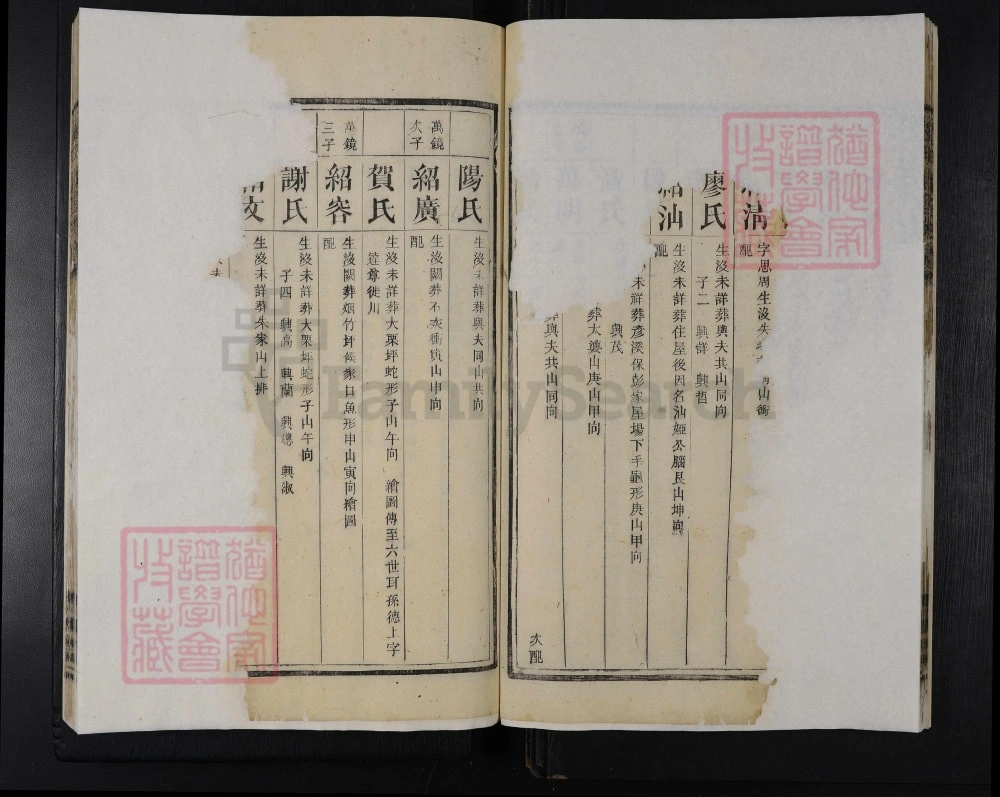 清
字思周生沒失
山
配
廖氏
生沒未詳葬與夫共山同向
子二 興詳 興哲
汕
生沒未詳葬住屋後因名汕姬公腦艮山坤向
配
未詳葬彥深保彭家屋場下手龜形庚山甲向
興茂
葬太婆山庚山甲向
葬與夫共山同向
次配
陽氏
生沒未詳葬與夫同山共向
萬鏡
次子
紹廣
生沒闕葬不衣衝寅山申向
配
賀氏
生沒未詳葬大栗坪蛇形子山午向 繪圖傳至六世耳孫德上字
達尊徙川
萬鏡
三子
紹容
生沒闕葬烟竹坪餱家口魚形申山寅向繪圖
配
謝氏
生沒未詳葬大栗坪蛇形子山午向
子四 興高 興蘭 興聰 興淑
文
生沒未詳葬朱家山上排
FamilySearch
譜學會
收藏
譜學會
收藏